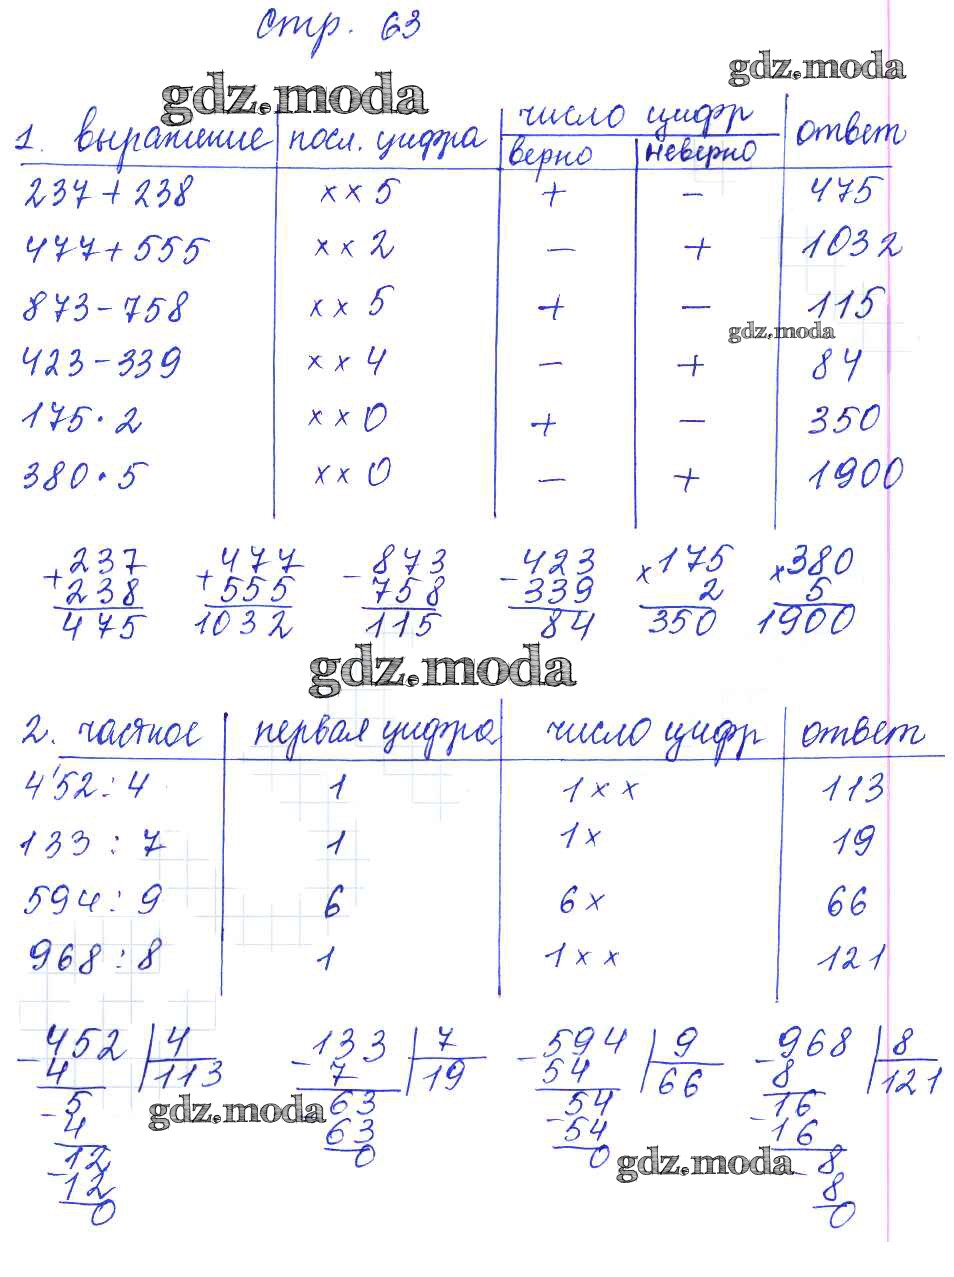 стр. 63
gdz.moda
gdz.moda
1. выражение посл. цифра число цифр ответ
верно неверно
237 + 238 х х 5 + − 475
477 + 555 х х 2 − + 1032
873 − 758 х х 5 + − 115
gdz.moda
423 − 339 х х 4 − + 84
175 · 2 х х 0 + − 350
380 · 5 х х 0 − + 1900
237 477 873 423 175 380
+ 238 + 555 − 758 − 339 х 2 х 5
475 1032 115 84 350 1900
gdz.moda
2. частное первая цифра число цифр ответ
4'52 : 4 1 1 х х 113
133 : 7 1 1 х 19
594 : 9 6 6 х 66
968 : 8 1 1 х х 121
− 452 | 4 − 133 | 7 − 594 | 9 − 968 | 8
4 113 7 19 54 66 8 121
gdz.moda
− 5 63 − 54 − 16
4 63 54 16
12 0 0 − 8
gdz.moda
− 12 8
0 0